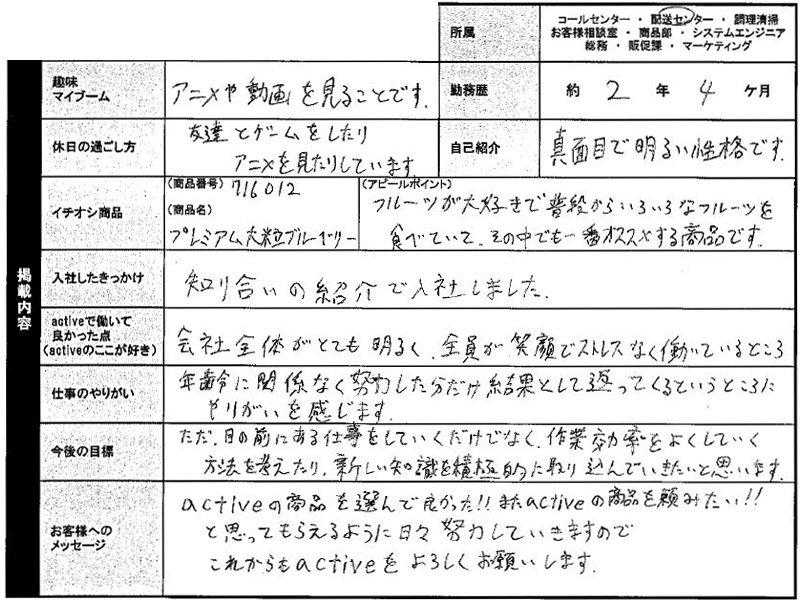 所属
コールセンター ・ 配送センター ・ 調理清掃
お客様相談室 ・ 商品部 ・ システムエンジニア
総務 ・ 販促課 ・ マーケティング
掲載内容
趣味
マイブーム
アニメや動画を見ることです。
勤務歴
約 2 年 4 ケ月
休日の過ごし方
友達とゲームをしたり
アニメを見たりしています
自己紹介
真面目で明るい性格です。
イチオシ商品
(商品番号) 716012
(商品名)
プレミアム大粒ブルーベリー
(アピールポイント)
フルーツが大好きで普段からいろいろなフルーツを
食べていて、その中でも一番オススメする商品です。
入社したきっかけ
知り合いの紹介で入社しました。
activeで働いて
良かった点
(activeのここが好き)
会社全体がとても明るく、全員が笑顔でストレスなく働いているところ
仕事のやりがい
年齢に関係なく努力した分だけ結果として返ってくるというところに
やりがいを感じます。
今後の目標
ただ、目の前にある仕事をしていくだけでなく、作業効率をよくしていく
方法を考えたり、新しい知識を積極的に取り込んでいきたいと思います。
お客様への
メッセージ
activeの商品を選んで良かった!!またactiveの商品を頼みたい!!
と思ってもらえるように日々努力していきますので
これからもactiveをよろしくお願いします。